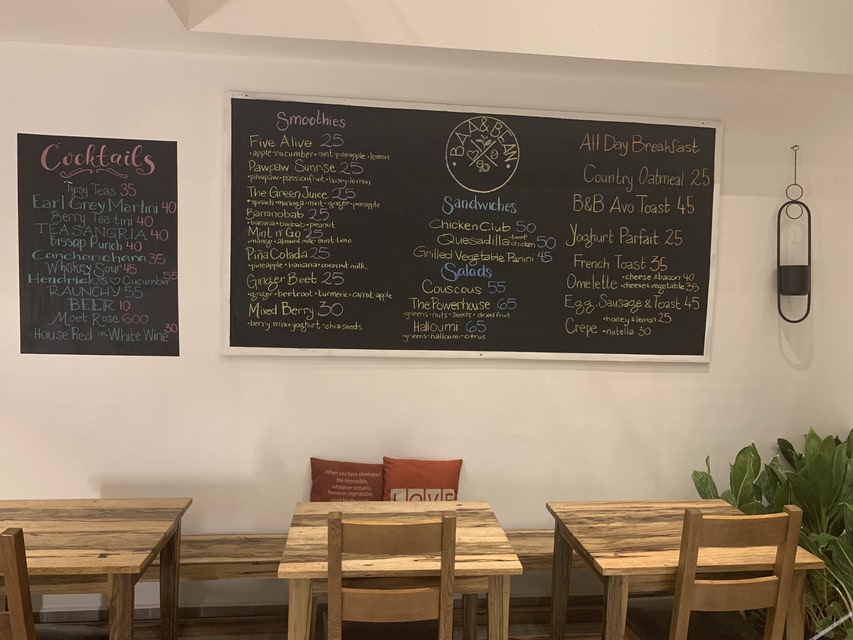 Cocktails
Tipsy Teas 35
Earl Grey Martini 40
Berry Tea-tini 40
TEASANGRIA 40
Bissap Punch 40
Canchanchara 35
Whiskey Sour 45
Hendrick's Cucumber 55
RAUNCHY 55
BEER 10
Moet Rose 600
House Red or White Wine 30
Smoothies
Five Alive 25
•apple•cucumber•mint•pineapple•lemon
Pawpaw Sunrise 25
•pawpaw•passionfruit•honey•lemon
The Green Juice 25
•spinach•moringa•mint•ginger•pineapple
Bananobab 25
•banana•baobab•peanut
Mint n' Go 25
•mango•almond milk•mint•lime
Piña Colada 25
•pineapple•banana•coconut milk
Ginger Beet 25
•ginger•beetroot•turmeric•carrot•apple
Mixed Berry 30
•berry mix•yoghurt•chia seeds
BAA&BEAN
Sandwiches
Chicken Club 50
Quesadilla •beef •chicken 50
Grilled Vegetable Panini 45
Salads
Couscous 55
The Powerhouse 65
•greens•nuts•seeds•dried fruit
Halloumi 65
•greens•halloumi•citrus
All Day Breakfast
Country Oatmeal 25
B&B Avo Toast 45
Yoghurt Parfait 25
French Toast 35
Omelette •cheese & bacon 40
•cheese & vegetable 35
Egg, Sausage & Toast 45
Crêpe •honey & lemon 25
•nutella 30
When you have eliminated
the impossible,
whatever remains,
however improbable,
must be the
LOVE